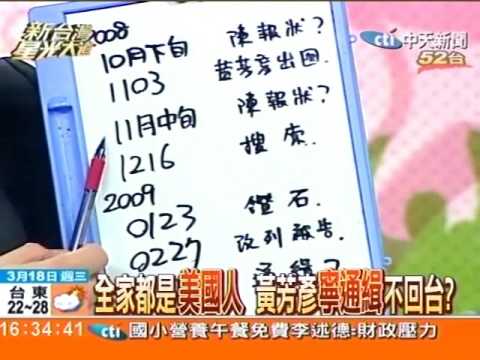 新台灣
星光大道
cti 中天新聞
52台
2008
10月下旬 陳報狀?
1103 黃芳彥出國.
11月中旬 陳報狀?
1216 搜索.
2009
0123 鑽石
0227 改列被告
3月18日 週三
全家都是美國人 黃芳彥寧通緝不回台?
台東
22~28
16:34:41 cti 國小營養午餐免費李述德:財政壓力